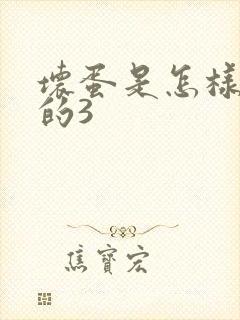 壞蛋是怎樣
的3
焦寶宏